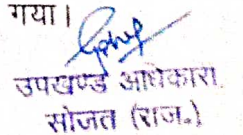 गया।
उपखण्ड अधिकारी
सोजत (राज.)